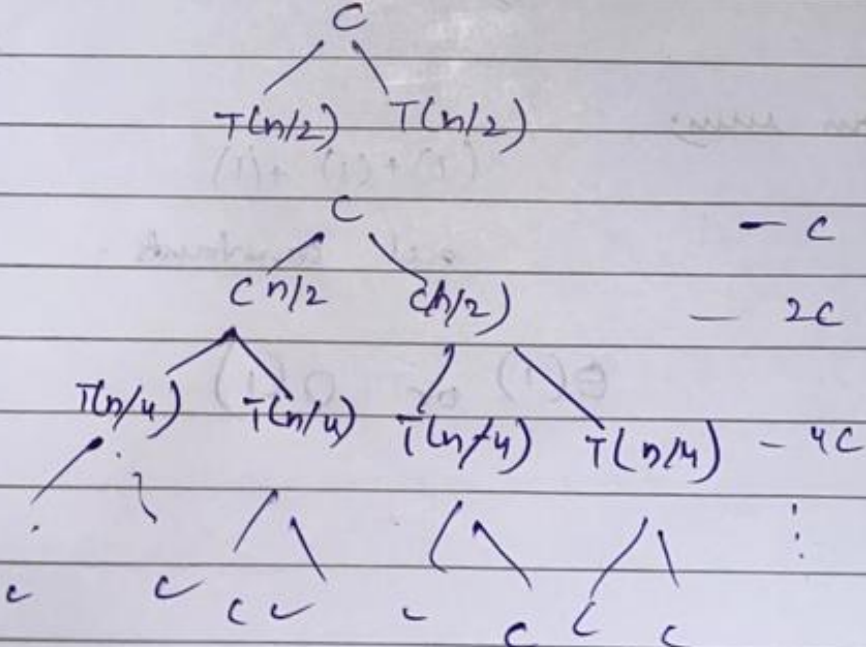 C
T(n/2) T(n/2)
C - C
C n/2 C(n/2) - 2C
T(n/4) T(n/4) T(n/4) T(n/4) - 4C
C C C C C C C C